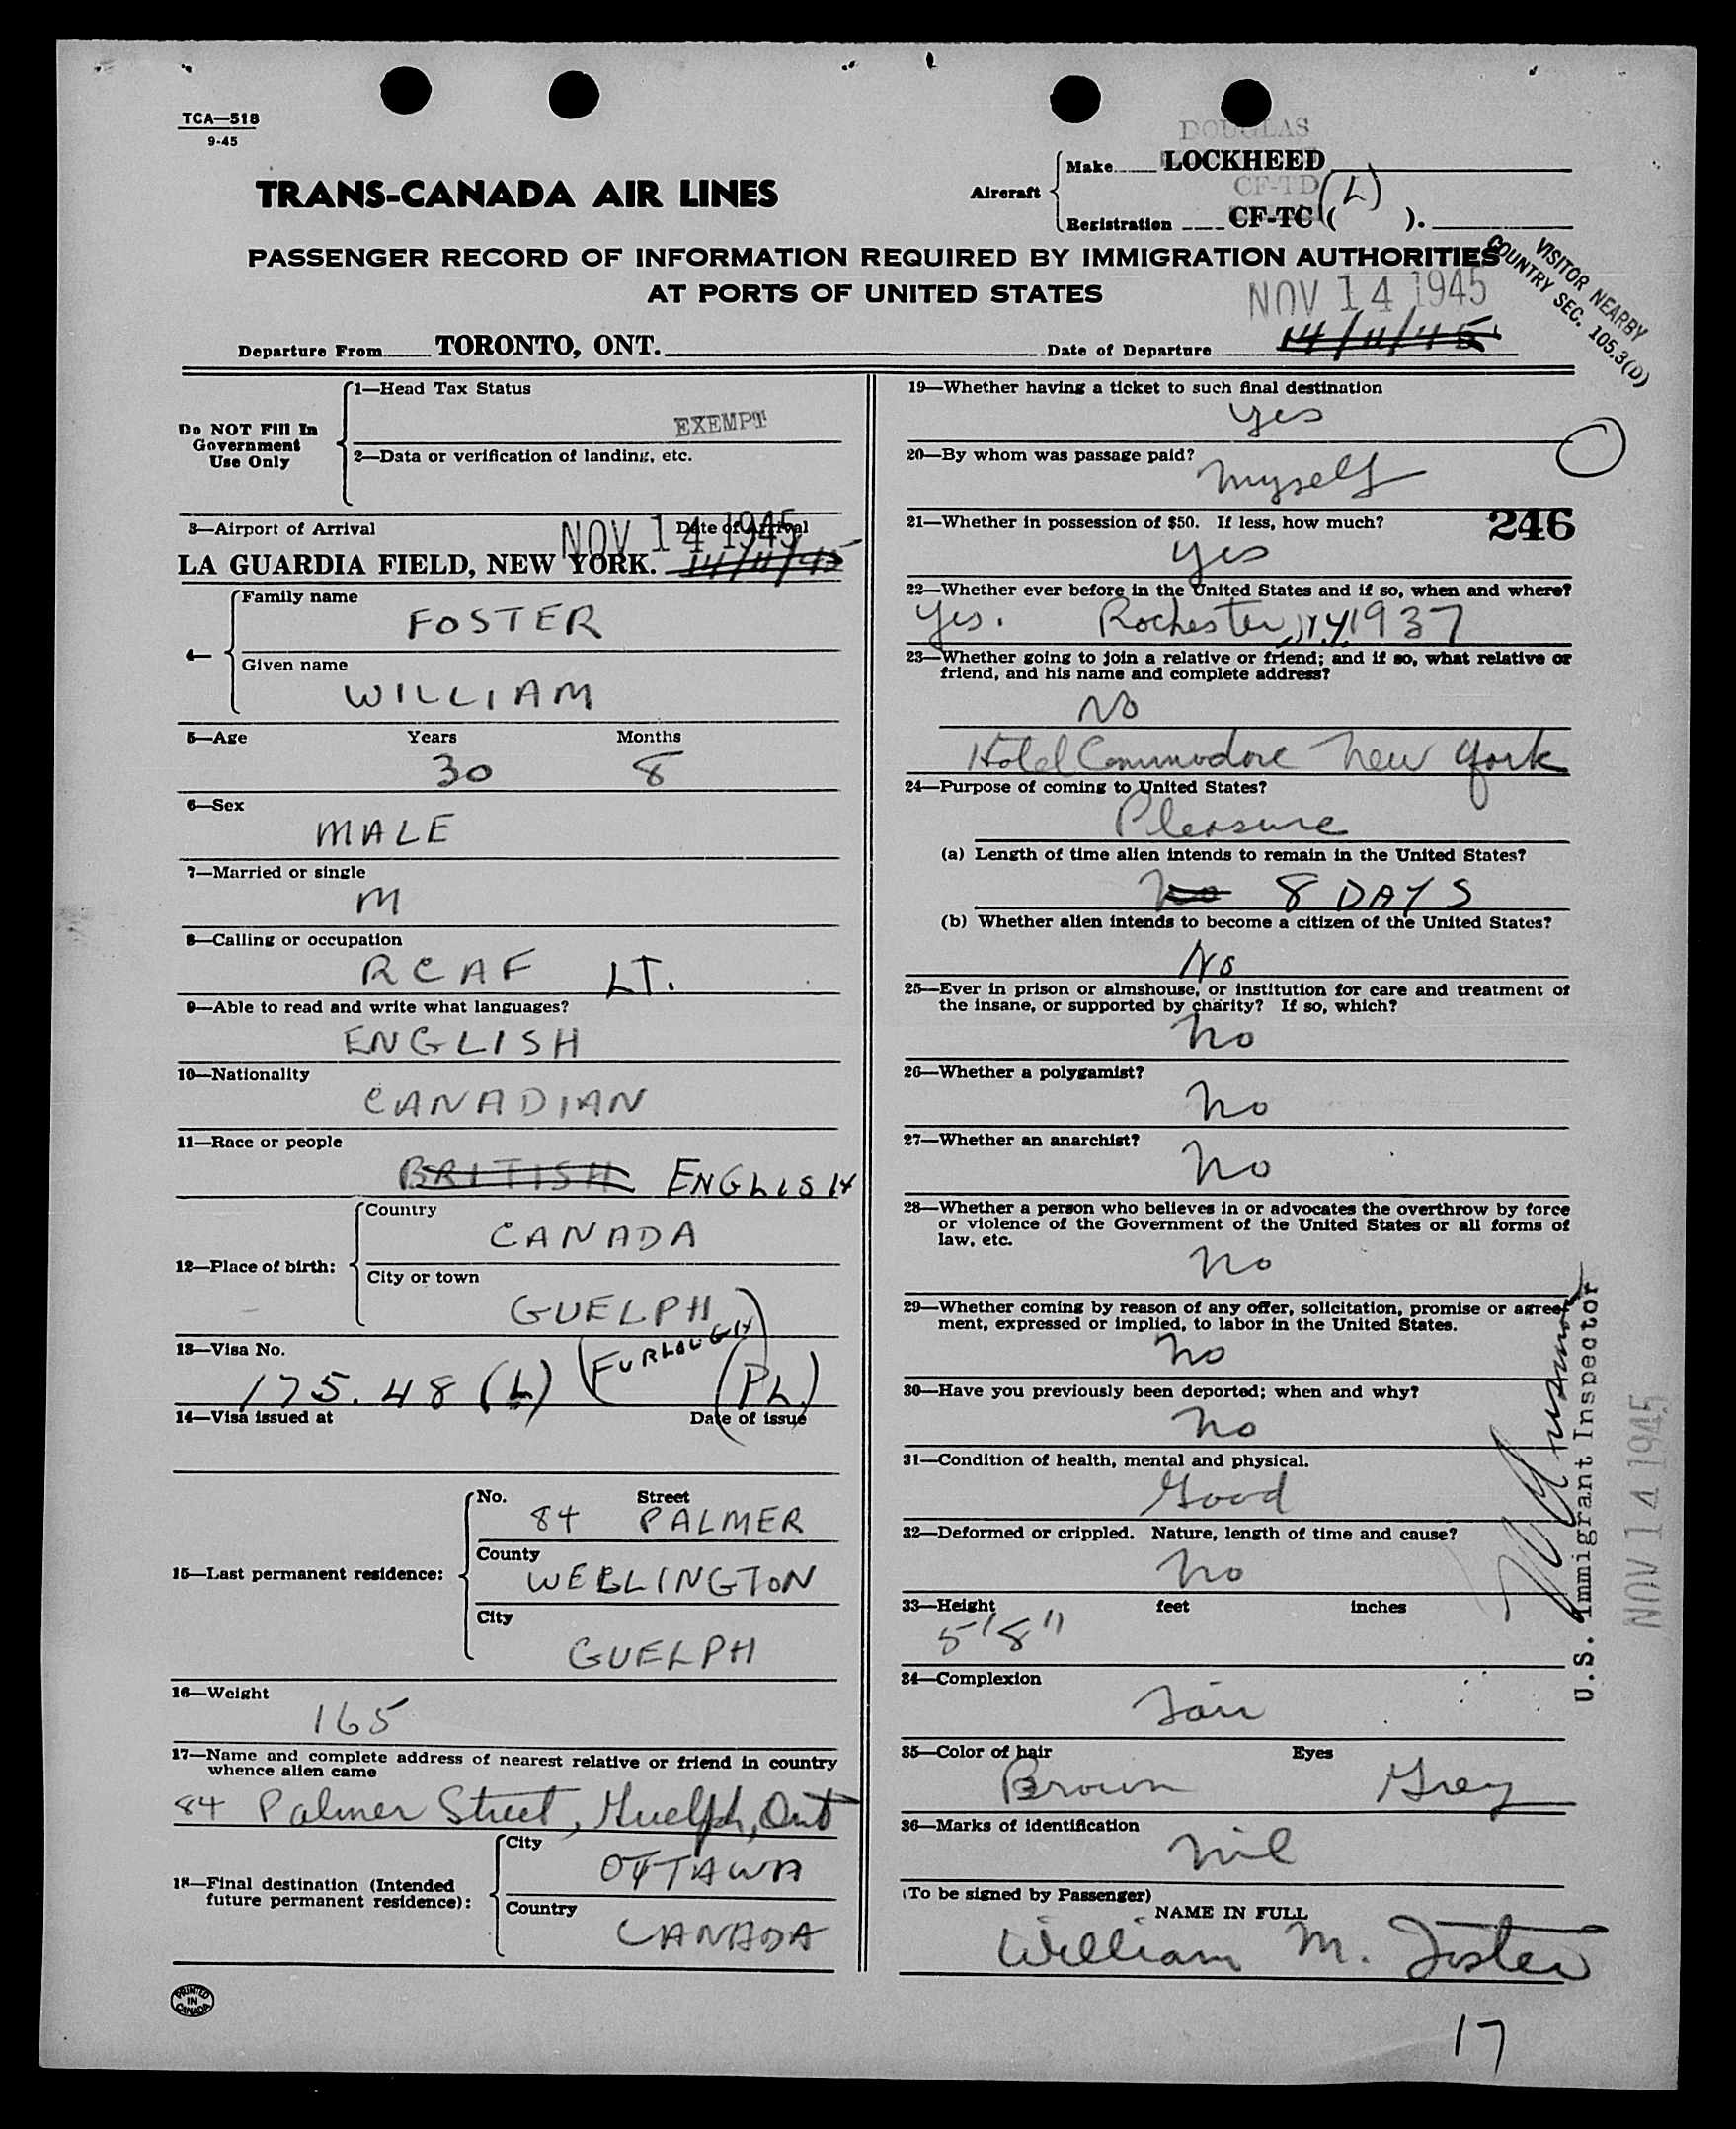 TCA—518
9-45
TRANS-CANADA AIR LINES
Aircraft
DOUGLAS
Make LOCKHEED
CF-TD (L)
Registration CF-TC ( ).
PASSENGER RECORD OF INFORMATION REQUIRED BY IMMIGRATION AUTHORITIES
AT PORTS OF UNITED STATES
VISITOR NEARBY
COUNTRY SEC. 105.3(D)
NOV 14 1945
Departure From TORONTO, ONT. Date of Departure 14/11/45
Do NOT Fill In
Government
Use Only
1—Head Tax Status
EXEMPT
2—Data or verification of landing, etc.
3—Airport of Arrival Date of Arrival
NOV 14 1945
LA GUARDIA FIELD, NEW YORK. 14/11/45
4—
Family name
FOSTER
Given name
WILLIAM
5—Age Years Months
30 8
6—Sex
MALE
7—Married or single
M
8—Calling or occupation
RCAF LT.
9—Able to read and write what languages?
ENGLISH
10—Nationality
CANADIAN
11—Race or people
BRITISH ENGLISH
12—Place of birth:
Country
CANADA
City or town
GUELPH
13—Visa No.
175.48 (L) (FURLOUGH) (PL)
14—Visa issued at Date of issue
15—Last permanent residence:
No. Street
84 PALMER
County
WELLINGTON
City
GUELPH
16—Weight
165
17—Name and complete address of nearest relative or friend in country
whence alien came
84 Palmer Street, Guelph, Ont
18—Final destination (Intended
future permanent residence):
City
OTTAWA
Country
CANADA
PRINTED
IN
CANADA
19—Whether having a ticket to such final destination
yes
20—By whom was passage paid?
Myself
21—Whether in possession of $50. If less, how much?
246
yes
22—Whether ever before in the United States and if so, when and where?
Yes. Rochester, N.Y. 1937
23—Whether going to join a relative or friend; and if so, what relative or
friend, and his name and complete address?
No
Hotel Commodore New York
24—Purpose of coming to United States?
Pleasure
(a) Length of time alien intends to remain in the United States?
no 8 DAYS
(b) Whether alien intends to become a citizen of the United States?
No
25—Ever in prison or almshouse, or institution for care and treatment of
the insane, or supported by charity? If so, which?
no
26—Whether a polygamist?
no
27—Whether an anarchist?
no
28—Whether a person who believes in or advocates the overthrow by force
or violence of the Government of the United States or all forms of
law, etc.
no
29—Whether coming by reason of any offer, solicitation, promise or agree-
ment, expressed or implied, to labor in the United States.
no
30—Have you previously been deported; when and why?
no
31—Condition of health, mental and physical.
Good
32—Deformed or crippled. Nature, length of time and cause?
no
33—Height feet inches
5'8"
34—Complexion
Fair
35—Color of hair Eyes
Brown Grey
36—Marks of identification
nil
(To be signed by Passenger)
NAME IN FULL
William M. Foster
U.S. Immigrant Inspector
NOV 14 1945
17